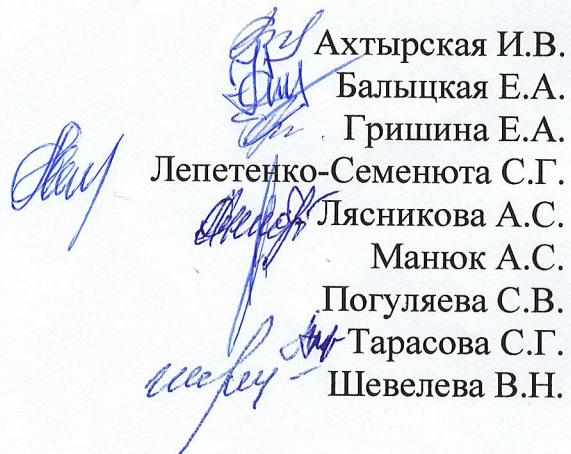 Ахтырская И.В.
Балыцкая Е.А.
Гришина Е.А.
Лепетенко-Семенюта С.Г.
Лясникова А.С.
Манюк А.С.
Погуляева С.В.
Тарасова С.Г.
Шевелева В.Н.